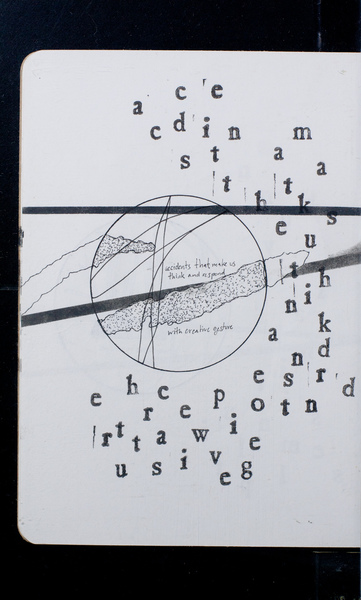 a c e
c d i n m
s t a a
t h t k s
e u
accidents that make us
think and respond
with creative gesture
t h
n i
a k
n d
e h c e p e s r d
r o t n
r t t a w i e
u s i v e g